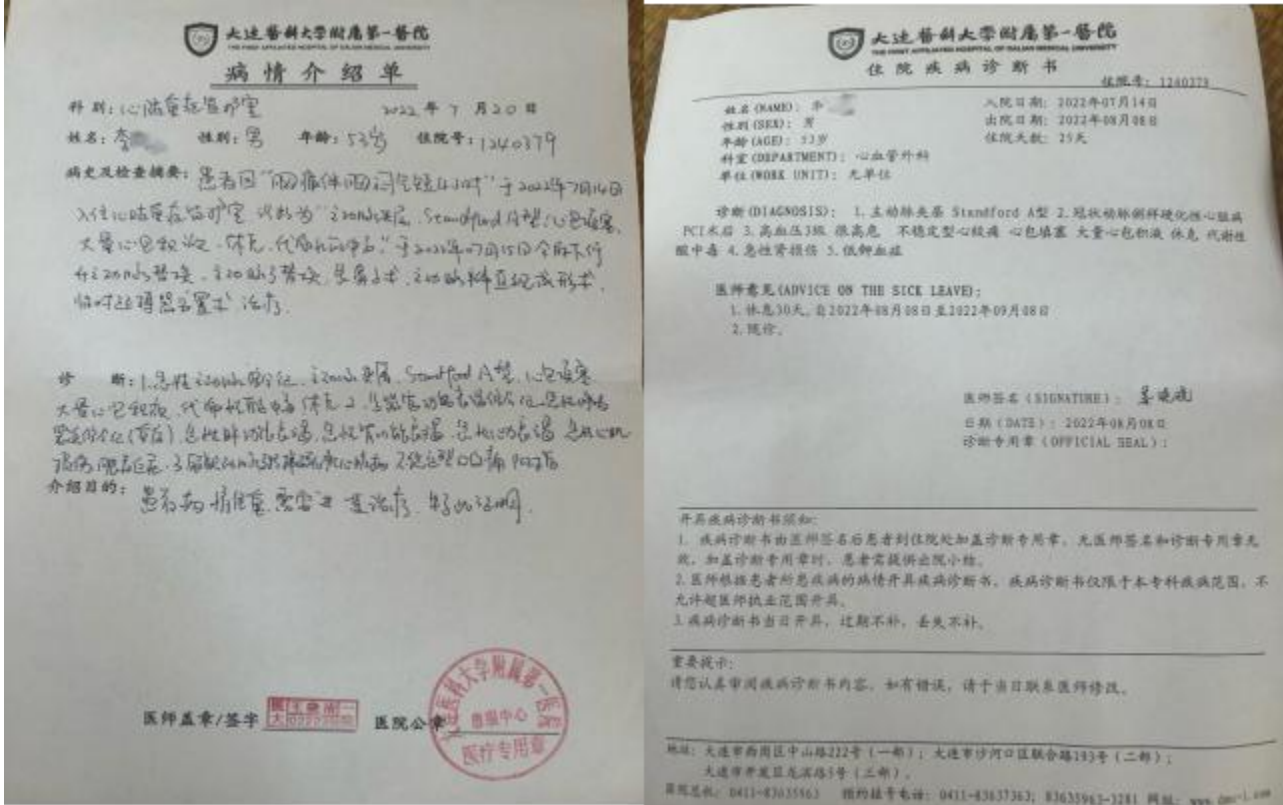 大连医科大学附属第一医院
THE FIRST AFFILIATED HOSPITAL OF DALIAN MEDICAL UNIVERSITY
病情介绍单
科别：心脏重症监护室 2022年7月20日
姓名：李 性别：男 年龄：53岁 住院号：1240379
病史及检查摘要：患者因“胸痛伴胸闷气短4小时”于2022年7月14日
入住心脏重症监护室 诊断为“主动脉夹层，Standford A型，心包填塞，
大量心包积液，休克，代谢性酸中毒”于2022年07月15日全麻下行
升主动脉替换，主动脉弓替换，象鼻手术，主动脉瓣直视成形术，
临时起搏器安置术 治疗。
诊 断：1.急性主动脉综合征，主动脉夹层，Standford A型，心包填塞
大量心包积液，代谢性酸中毒 休克 2.
急性肝功能衰竭，急性肾功能衰竭
介绍目的：
患者病情危重，需要进一步治疗，特此证明。
医师盖章/签字 医院公章
大连医科大学附属第一医院
医疗专用章
大连医科大学附属第一医院
THE FIRST AFFILIATED HOSPITAL OF DALIAN MEDICAL UNIVERSITY
住院疾病诊断书
住院号：1240379
姓名(NAME)：李 入院日期：2022年07月14日
性别(SEX)：男 出院日期：2022年08月08日
年龄(AGE)：53岁 住院天数：25天
科室(DEPARTMENT)：心血管外科
单位(WORK UNIT)：无单位
诊断(DIAGNOSIS)：1.主动脉夹层 Standford A型 2.冠状动脉粥样硬化性心脏病
PCI术后 3.高血压3级 很高危 不稳定型心绞痛 心包填塞 大量心包积液 休克 代谢性
酸中毒 4.急性肾损伤 5.低钾血症
医师意见(ADVICE ON THE SICK LEAVE)：
1.休息30天，自2022年08月08日至2022年09月08日
2.随诊。
医师签名(SIGNATURE)：
日期(DATE)：2022年08月08日
诊断专用章(OFFICIAL SEAL)：
开具疾病诊断书须知：
1. 疾病诊断书由医师签名后患者到住院处加盖诊断专用章，无医师签名和诊断专用章无
效，加盖诊断专用章时，患者需提供出院小结。
2.医师根据患者所患疾病的病情开具疾病诊断书，疾病诊断书仅限于本专科疾病范围，不
允许超医师执业范围开具。
3.疾病诊断书当日开具，过期不补，丢失不补。
重要提示：
请您认真审阅疾病诊断书内容，如有错误，请于当日联系医师修改。
地址：大连市西岗区中山路222号（一部）；大连市沙河口区联合路193号（二部）；
大连市开发区龙滨路5号（三部）。
医院总机：0411-83635963 预约挂号电话：0411-83637363；83635963-3281 网址：www.dmu-1.com